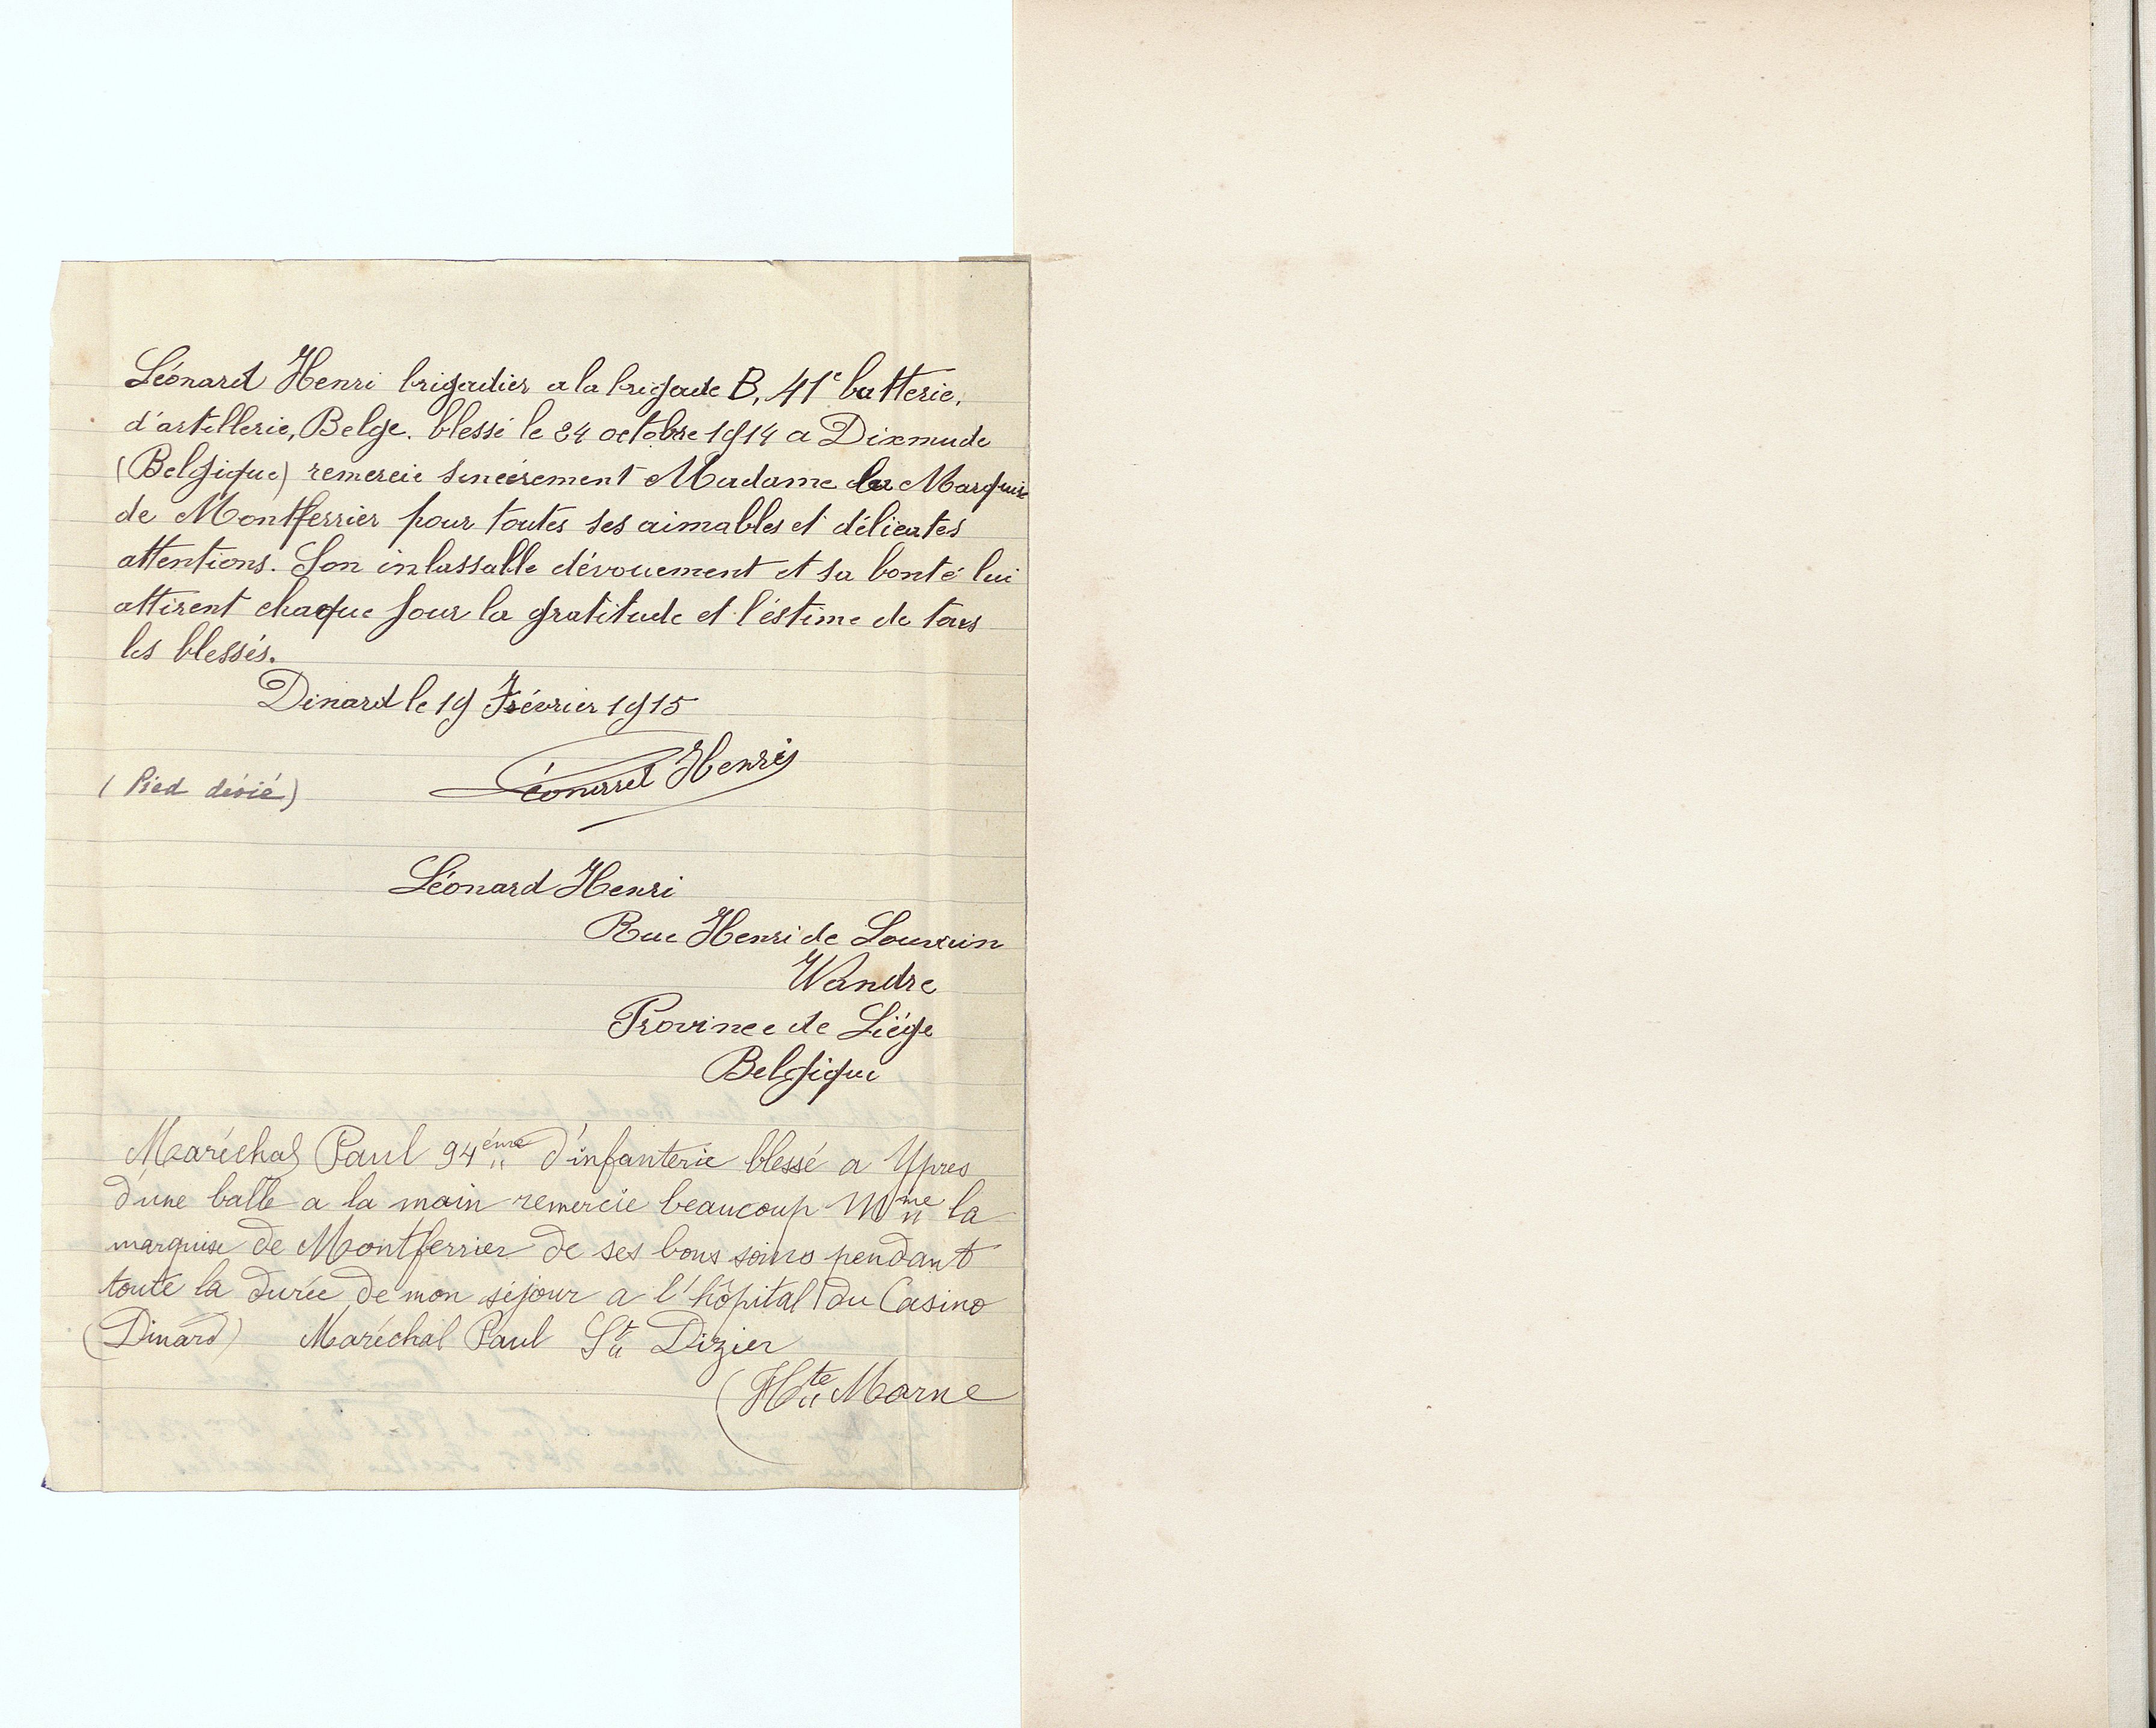 Léonard Henri brigadier a la brigade B, 41e batterie,
d'artillerie, Belge. blessé le 24 octobre 1914 a Dixmude
(Belgique) remercie sincérement Madame la Marquise
de Montferrier pour toutes ses aimables et délicates
attentions. Son inlassable dévouement et sa bonté lui
attirent chaque jour la gratitude et l'éstime de tous
les blessés.
Dinard le 19 Février 1915
Léonard Henri
(Pied dévié)
Léonard Henri
Rue Henri de Louvain
Wandre
Province de Liége
Belgique
Maréchal Paul 94éme d'infanterie blessé a Ypres
d'une balle a la main remercie beaucoup Mme la
marquise de Montferrier de ses bons soins pendant
toute la durée de mon séjour a l'hôpital du Casino
(Dinard) Maréchal Paul St Dizier
(Hte Marne